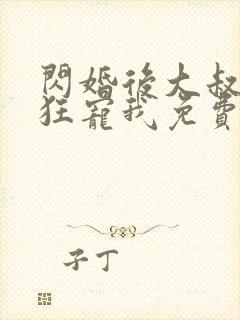 閃婚後大叔
狂寵我免費
子丁